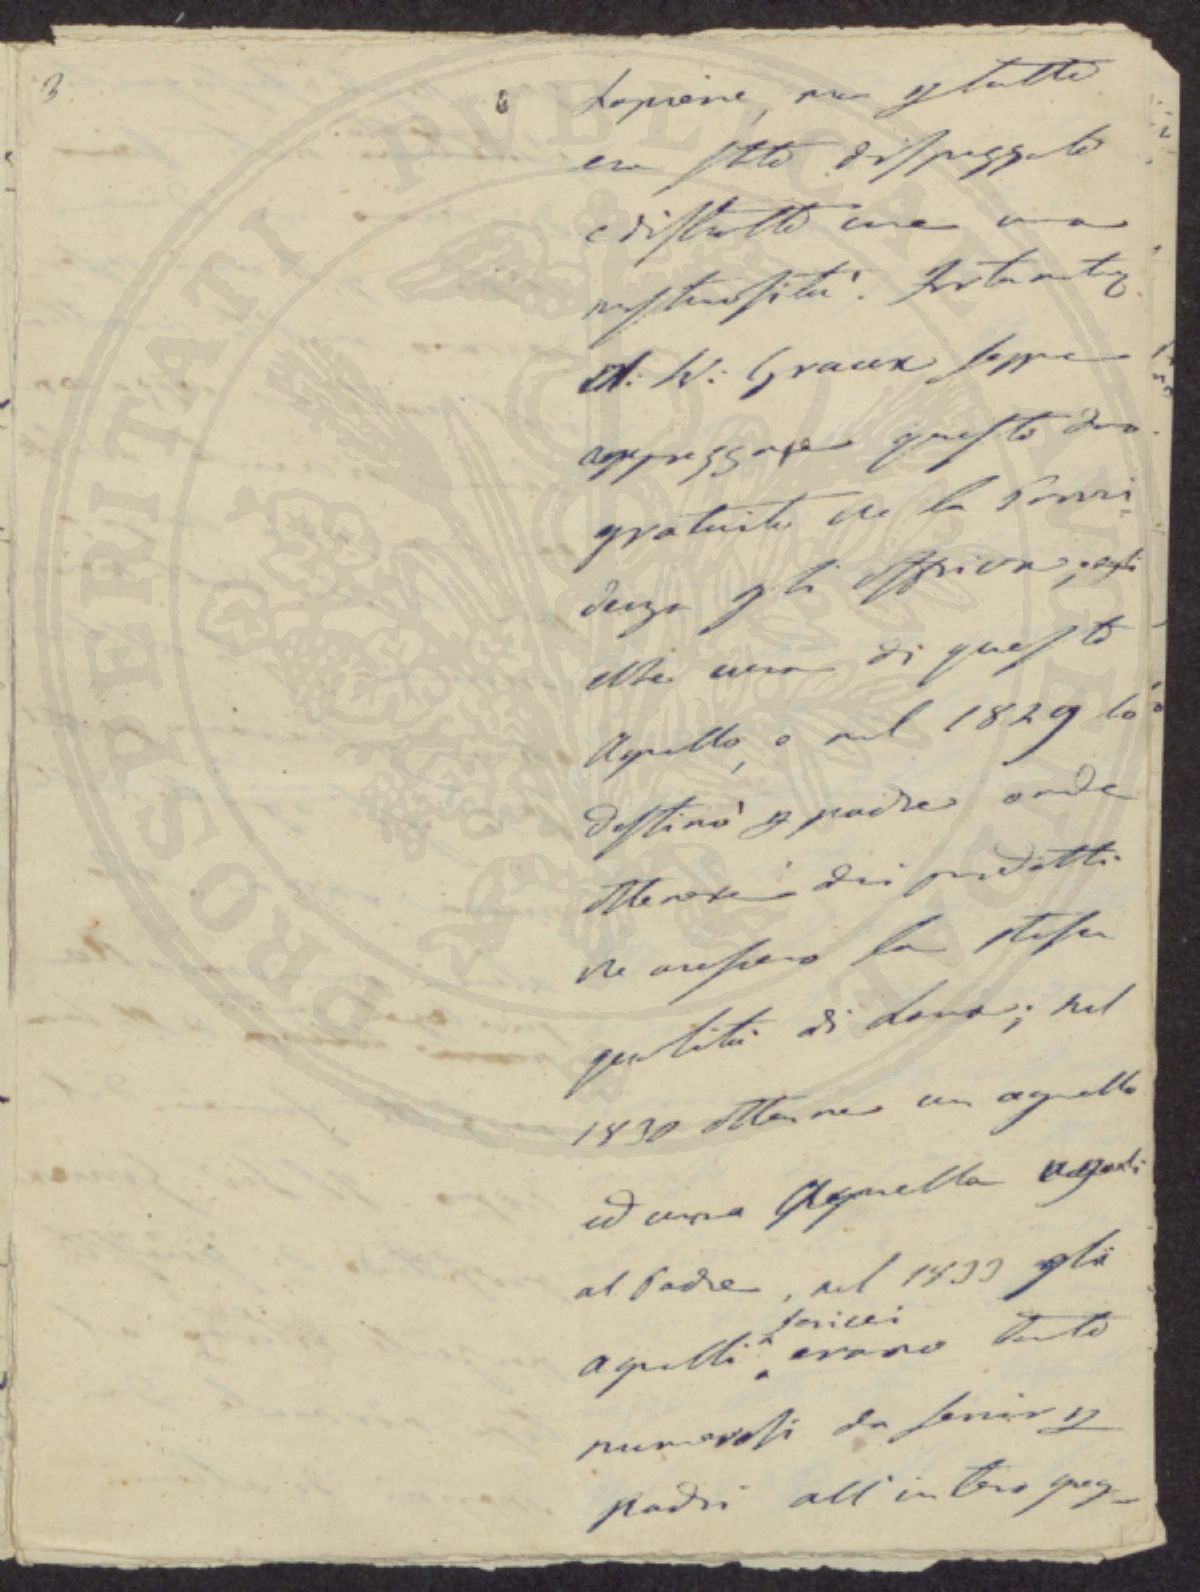 3
ma p tutto
era stato disprezzato
e distrutto come una
mostruosità. Fortunatamte
M. W: Graux seppe
apprezzare questo dono
gratuito che la Provvi
denza gli offriva, egli
ebbe cura di questo
Agnello, e nel 1829 lo
destinò p padre onde
ottenere dei prodotti
che avessero la stessa
qualità di Lana; nel
1830 ottenne un agnello
ed una Agnella uguali
al Padre, nel 1833 gli
agnelli sericei erano tanto
numerosi da servir p
padri all'intero greg-
PROSPERITATI PVBLICAE